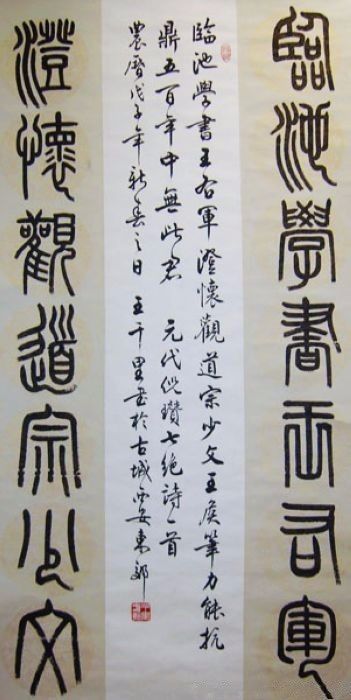 臨池學書王右軍
臨池學書王右軍澄懷觀道宗少文王侯筆力能抗
鼎五百年中無此君 元代倪瓚七絕詩一首
農曆戊子年新春之日 王千里書於古城西安東郊
澄懷觀道宗少文